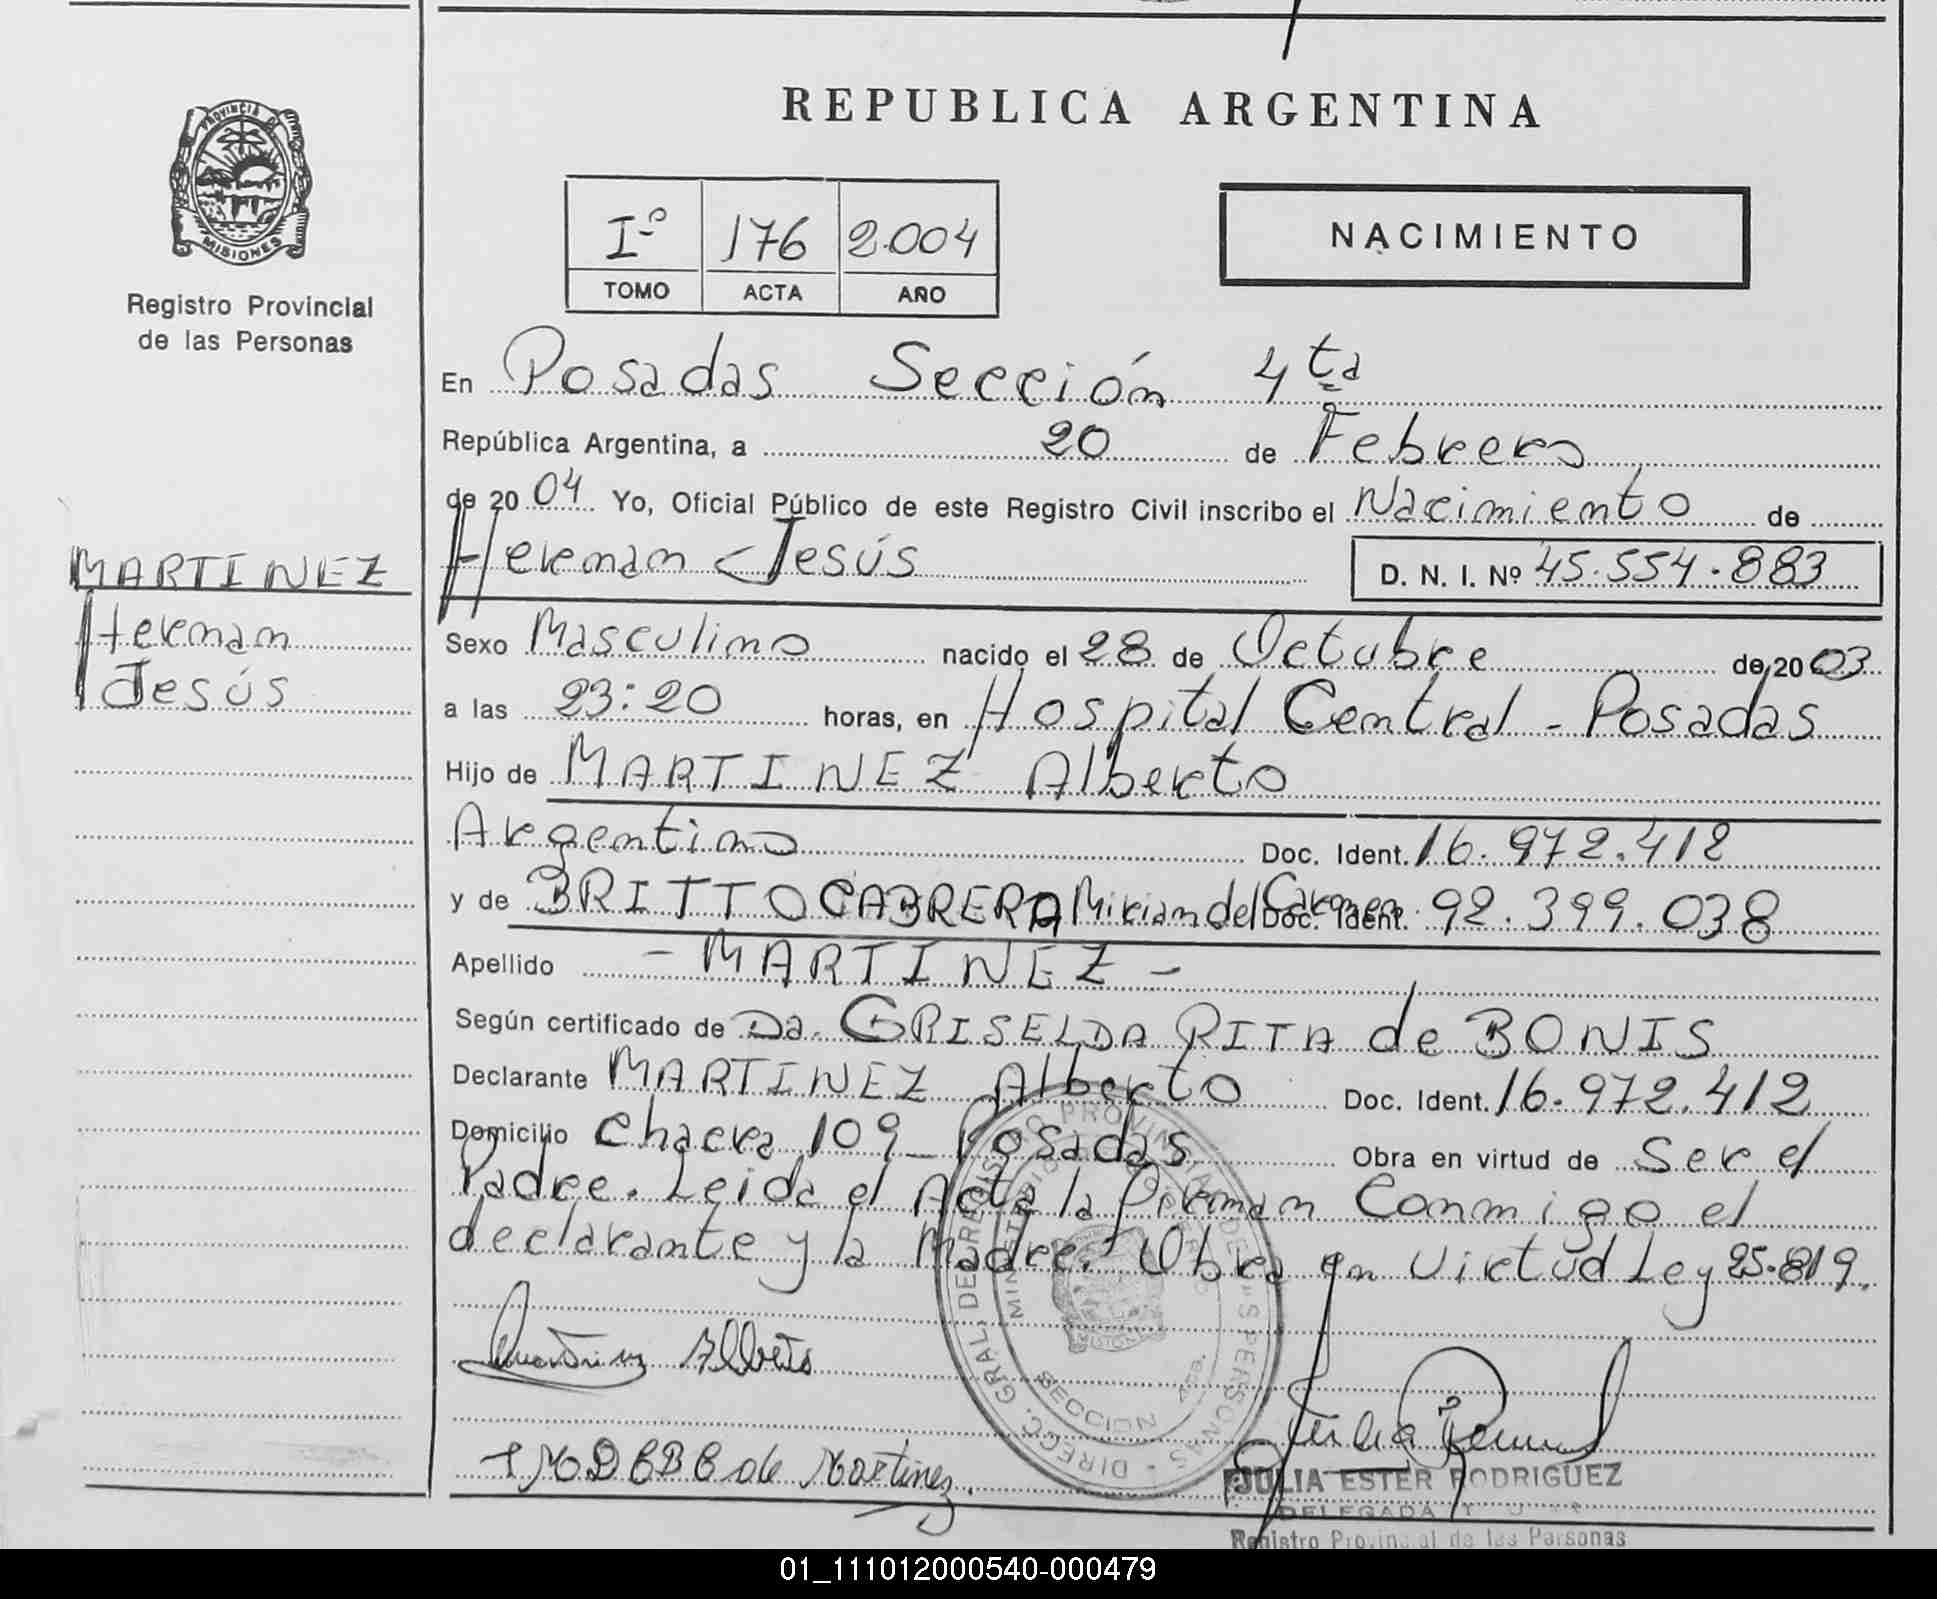 REPUBLICA ARGENTINA
PROVINCIA DE
MISIONES
Registro Provincial
de las Personas
Iº 176 2.004
TOMO ACTA AÑO
NACIMIENTO
En Posadas Sección 4ta
República Argentina, a 20 de Febrero
de 20 04 Yo, Oficial Público de este Registro Civil inscribo el Nacimiento de
MARTINEZ
Herman
Jesús
Herman Jesús D. N. I. Nº 45.554.883
Sexo Masculino nacido el 28 de Octubre de 20 03
a las 23:20 horas, en Hospital Central - Posadas
Hijo de MARTINEZ Alberto
Argentino Doc. Ident. 16.972.412
y de BRITTO CABRERA Miriam del Carmen Doc. Ident. 92.399.038
Apellido - MARTINEZ -
Según certificado de Da. GRISELDA RITA de BONIS
Declarante MARTINEZ Alberto Doc. Ident. 16.972.412
Domicilio Chacra 109 - Posadas Obra en virtud de Ser el
Padre. Leida el Acta la Firman Conmigo el
declarante y la Madre. Obra en Virtud Ley 25.819.
Martinez Alberto
de Martinez.
DIRECC. GRAL. DE REGISTRO PROVINCIAL DE LAS PERSONAS
MINISTERIO DE GOBIERNO
SECCION 4ta.
JULIA ESTER RODRIGUEZ
DELEGADA
Registro Provincial de las Personas
01_111012000540-000479